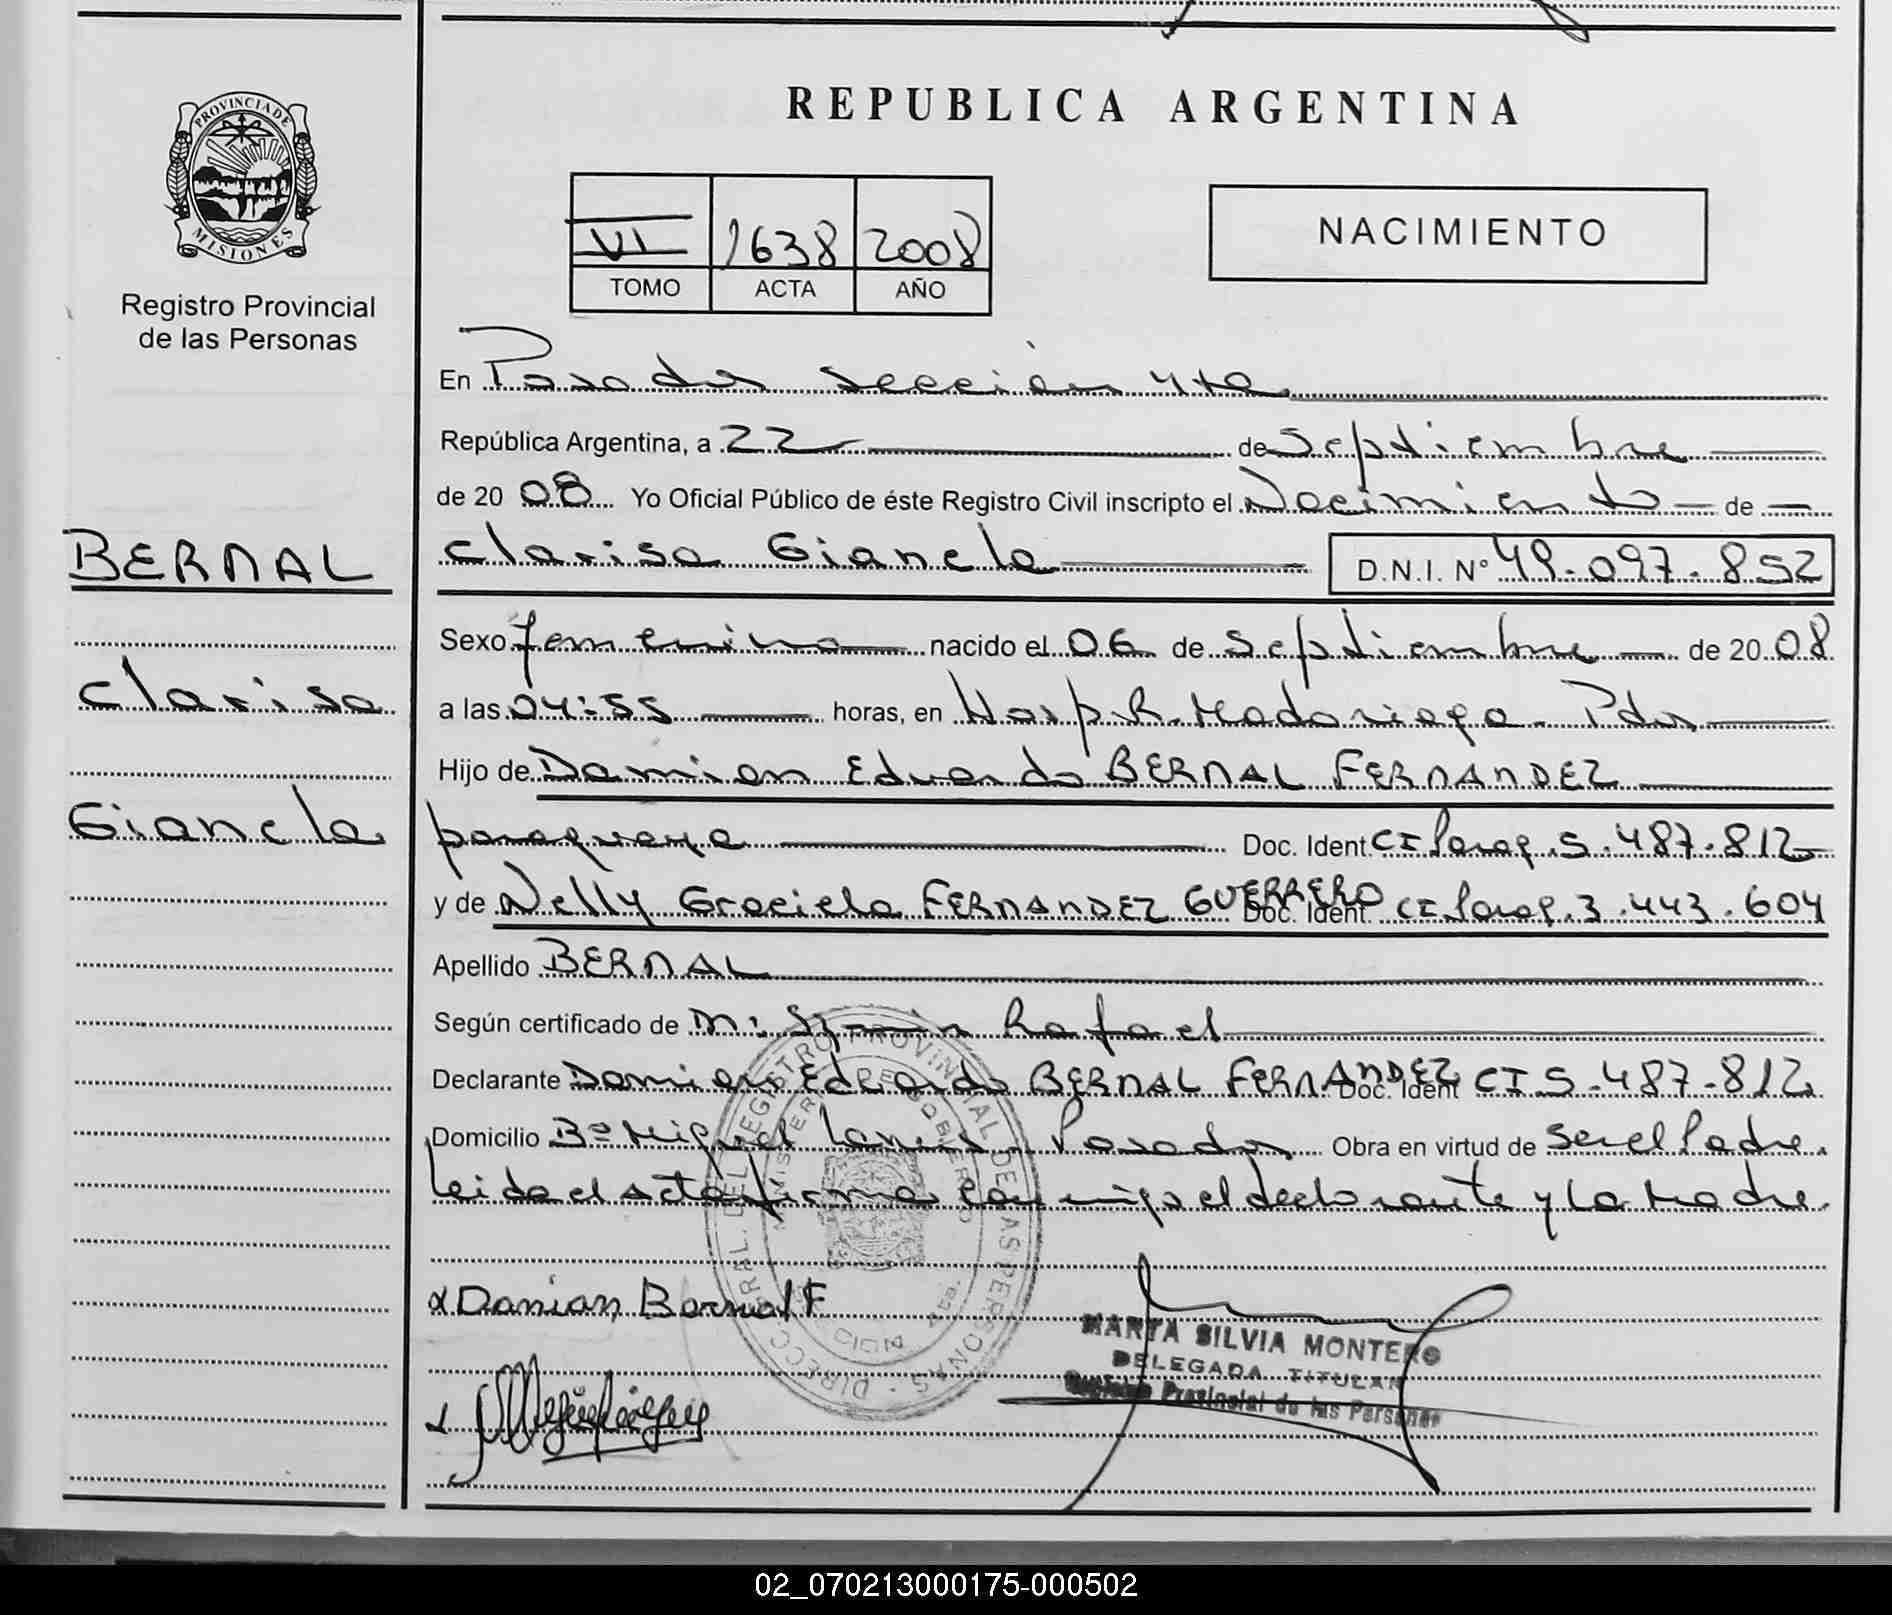 PROVINCIA DE
MISIONES
Registro Provincial
de las Personas
BERNAL
Clarisa
Gianela
REPUBLICA ARGENTINA
VI 1638 2008
TOMO ACTA AÑO
NACIMIENTO
En Posadas Sección 4ta
República Argentina, a 22 de Septiembre
de 20 08 Yo Oficial Público de éste Registro Civil inscripto el Nacimiento de
Clarisa Gianela D.N.I. N° 49.097.852
Sexo femenino nacido el 06 de Septiembre de 20 08
a las 04:55 horas, en Hosp. R. Madariaga. Pdas
Hijo de Damian Eduardo BERNAL FERNANDEZ
paraguaya Doc. Ident. CI Parag. 5.487.812
y de Nelly Graciela FERNANDEZ GUERRERO Doc. Ident. CI Parag. 3.443.604
Apellido BERNAL
Según certificado de M: Rafael
Declarante Damian Eduardo BERNAL FERNANDEZ Doc. Ident CI 5.487.812
Domicilio B° Miguel Lanus Posadas Obra en virtud de ser el Padre.
Leida el acta firma conmigo el declarante y la Madre.
Damian Bernal F
MARTA SILVIA MONTERO
DELEGADA TITULAR
Registro Provincial de las Personas
02_070213000175-000502